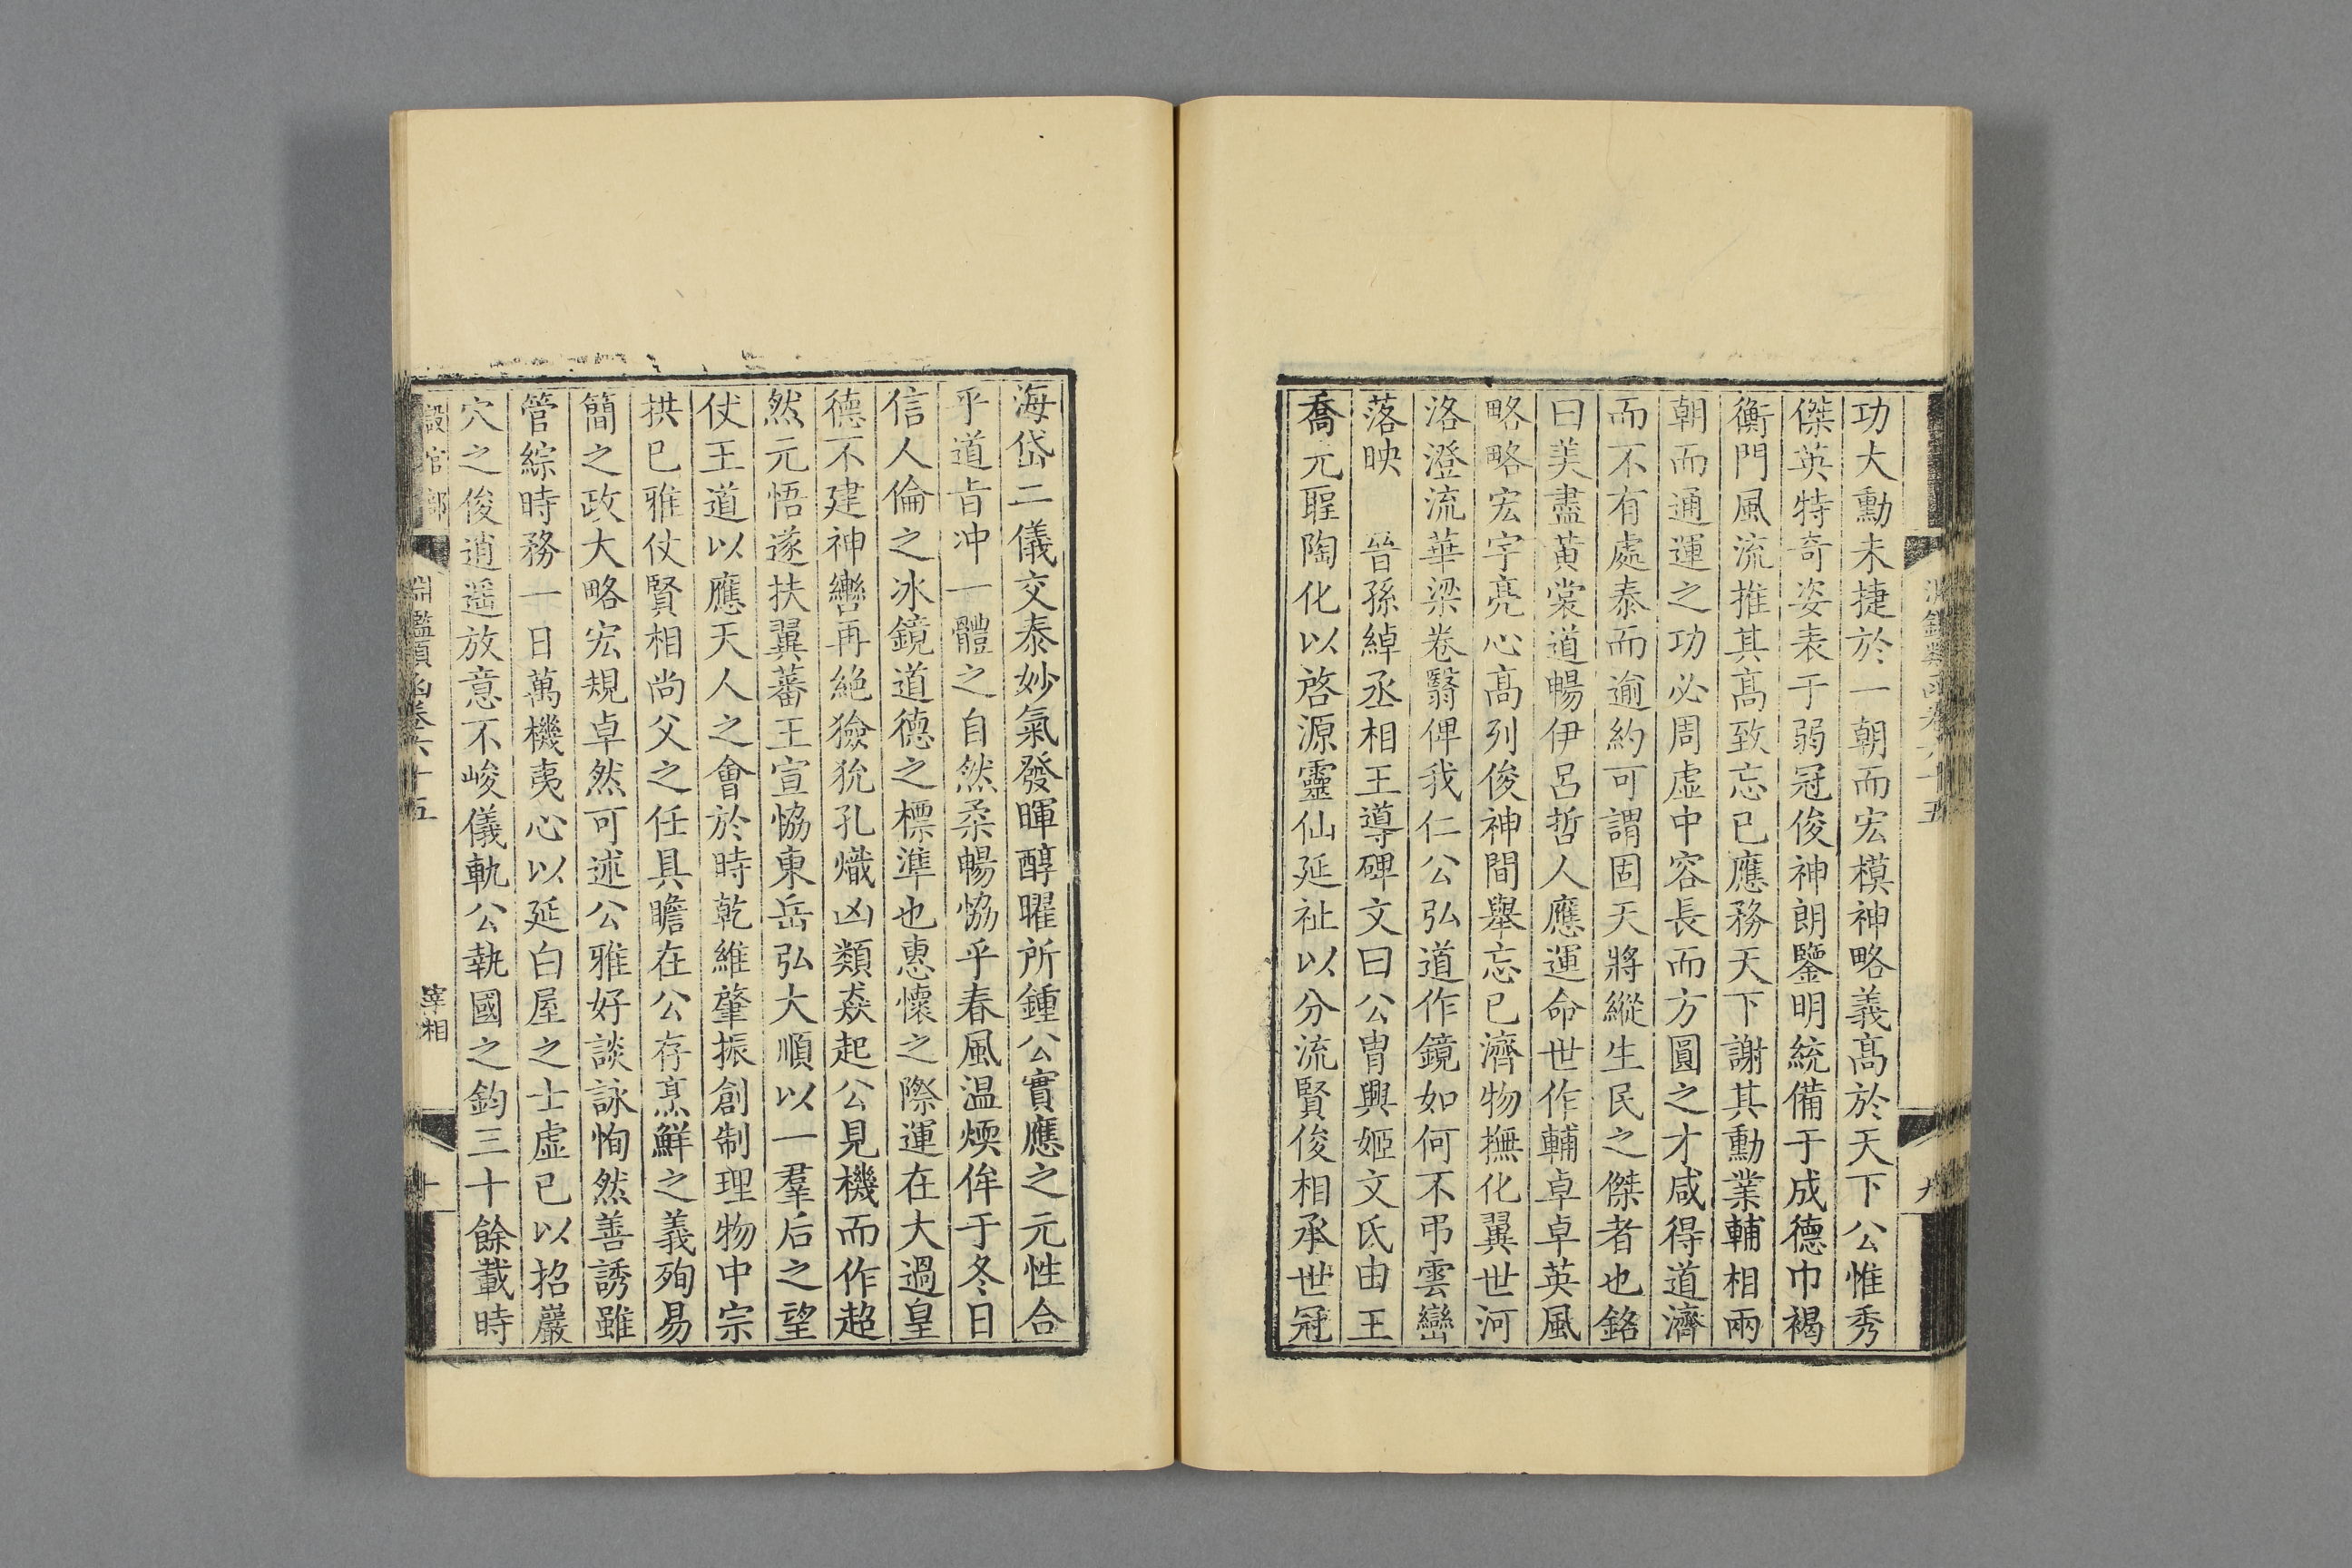 淵鑑類函卷六十五
九
功大勳未捷於一朝而宏模神略義高於天下公惟秀
傑英特奇姿表于弱冠俊神朗鑒明統備于成德巾褐
衡門風流推其高致忘已應務天下謝其勳業輔相兩
朝而通運之功必周虛中容長而方圓之才咸得道濟
而不有處泰而逾約可謂固天將縱生民之傑者也銘
曰美盡黃裳道暢伊呂哲人應運命世作輔卓卓英風
略略宏宇亮心高列俊神間舉忘已濟物撫化翼世河
洛澄流華梁卷翳俾我仁公弘道作鏡如何不弔雲巒
落映　晉孫綽丞相王導碑文曰公胄興姬文氏由王
喬元聖陶化以啓源靈仙延祉以分流賢俊相承世冠
海岱二儀交泰妙氣發暉醇曜所鍾公實應之元性合
乎道旨沖一體之自然柔暢恊乎春風温煗侔于冬日
信人倫之冰鏡道德之標準也惠懷之際運在大過皇
德不建神轡再絕獫狁孔熾凶類猋起公見機而作超
然元悟遂扶翼蕃王宣恊東岳弘大順以一羣后之望
仗王道以應天人之會於時乾維肇振創制理物中宗
拱已雅仗賢相尚父之任具瞻在公存烹鮮之義殉易
簡之政大略宏規卓然可述公雅好談詠恂然善誘雖
管綜時務一日萬機夷心以延白屋之士虛已以招巖
穴之俊逍遥放意不峻儀軌公執國之鈞三十餘載時
設官部
淵鑑類函卷六十五
宰相
十